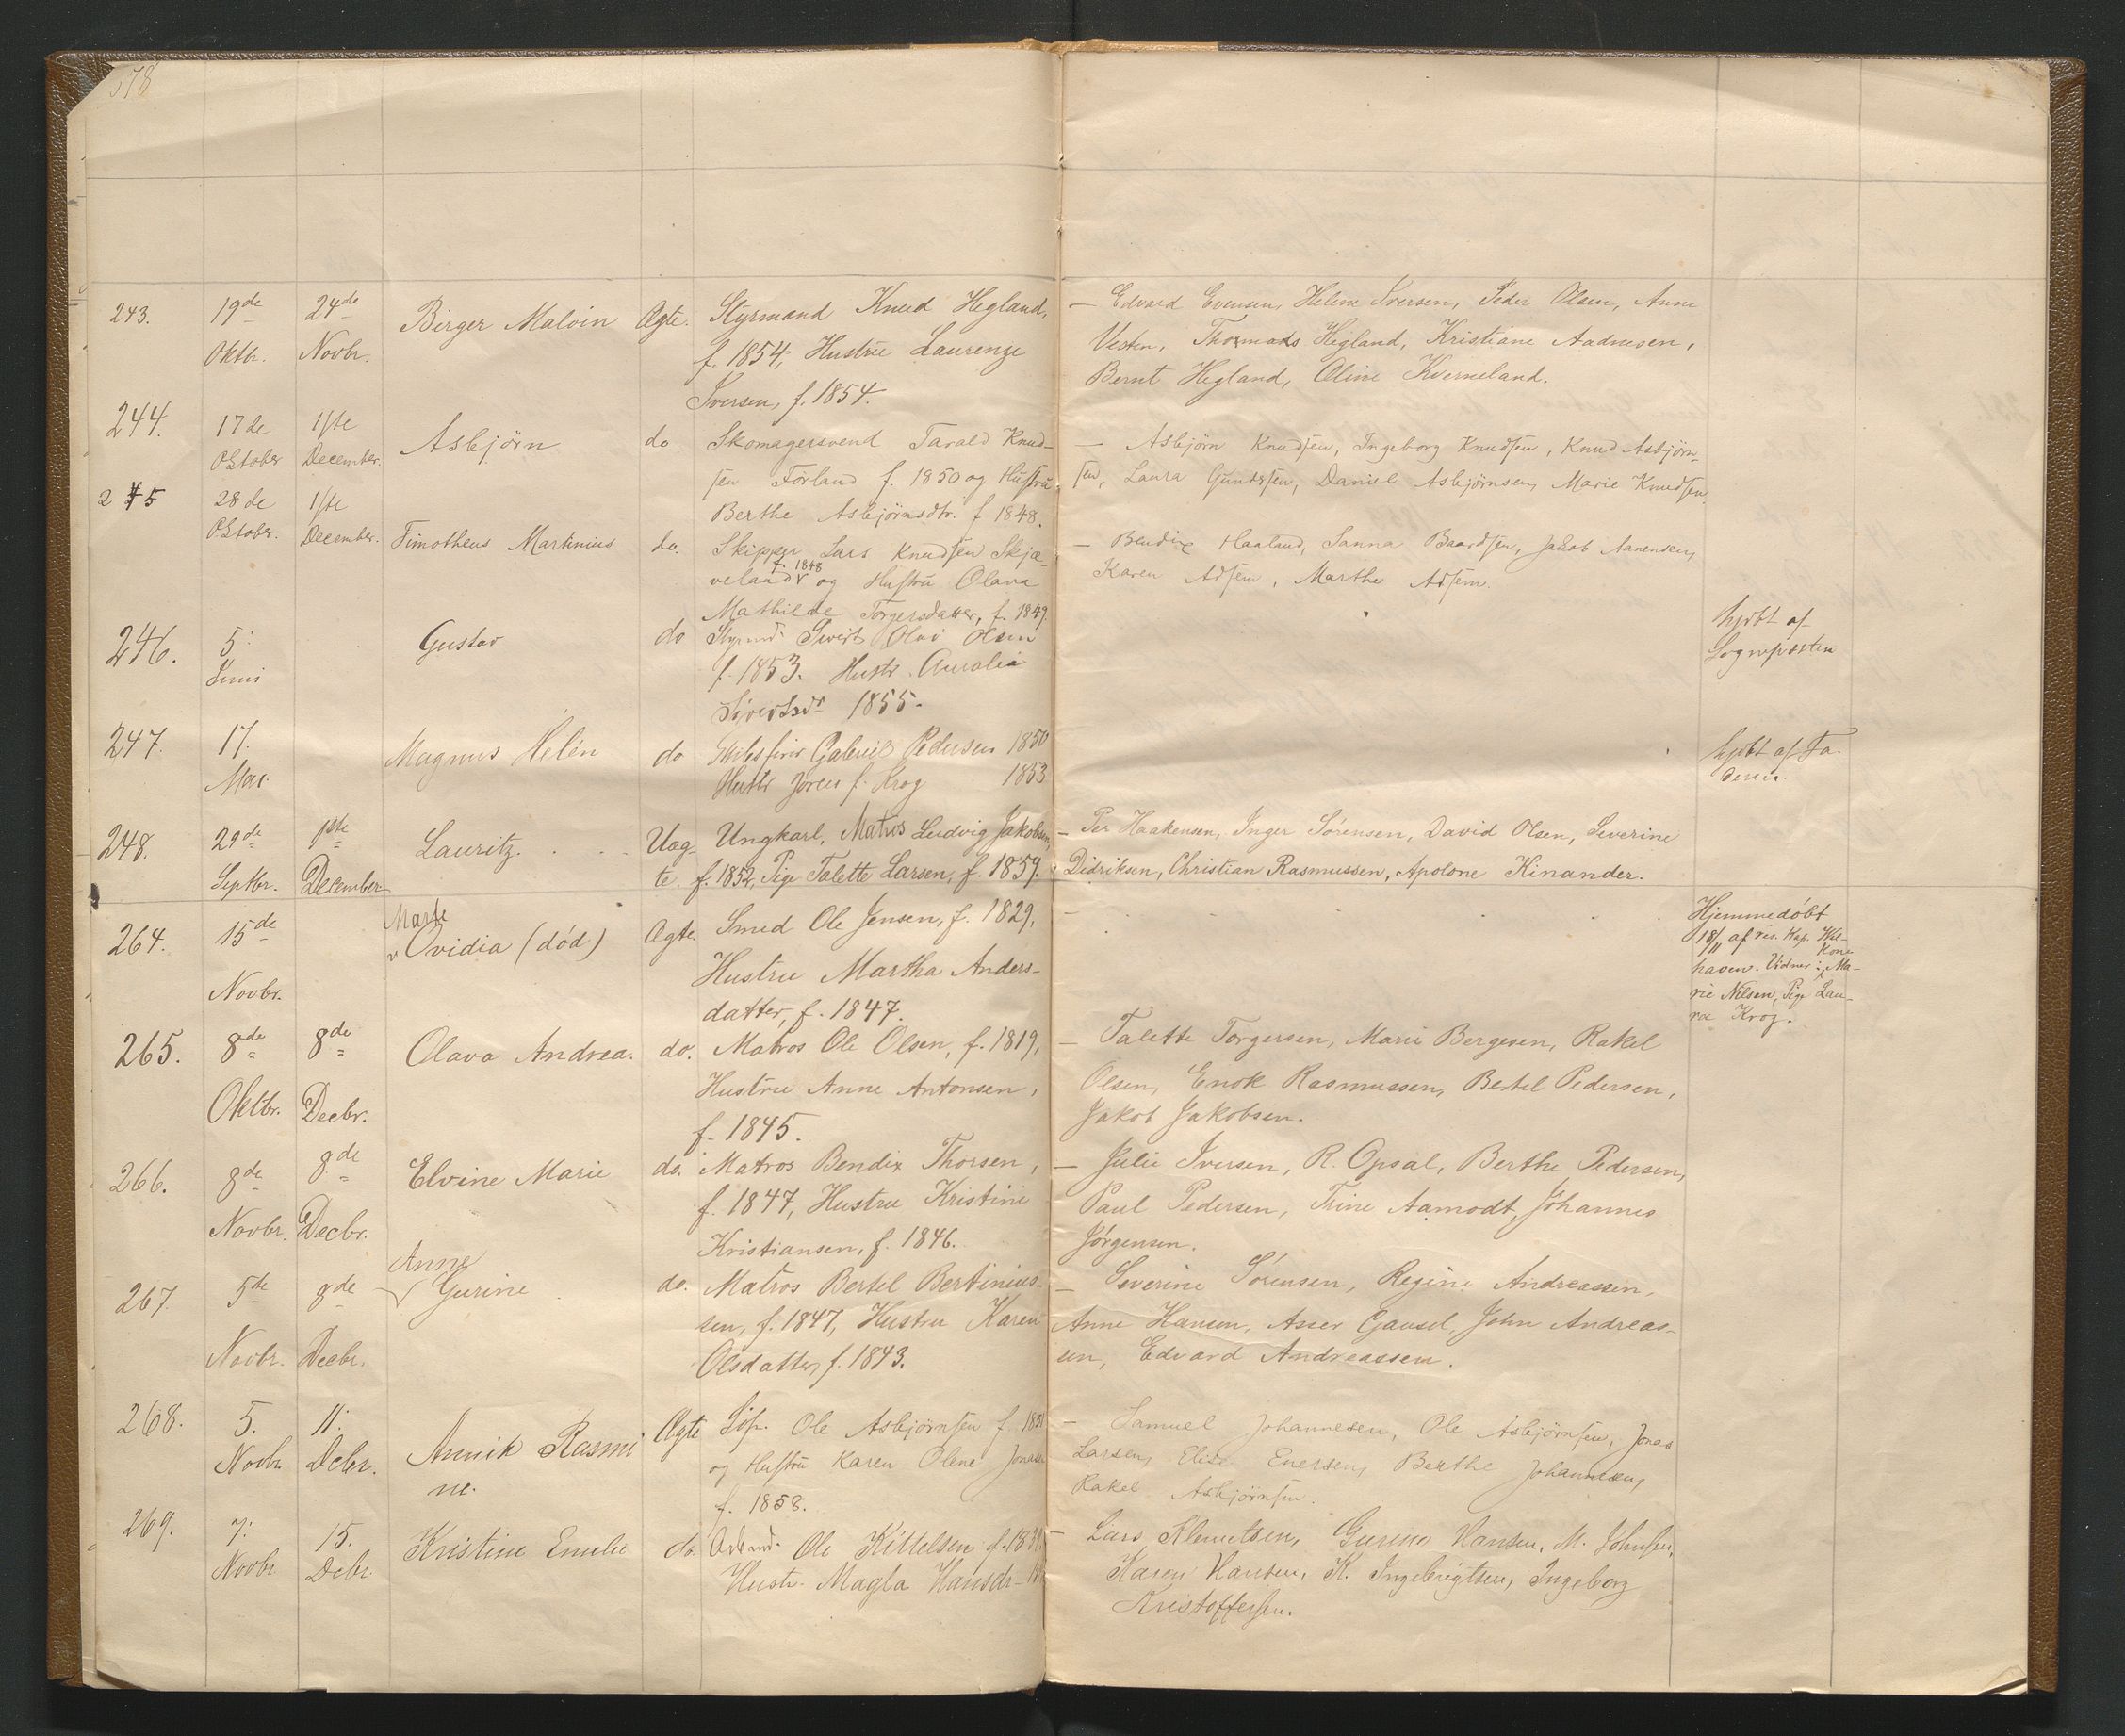 578
243. 19de 24de Birger Malvin Ægte. Styrmand Knud Hegland, — Edvard Evensen, Helene Iversen, Peder Olsen, Anne
Oktbr. Novbr. f. 1854, Hustru Laurenze Vesten, Thormods Hegland, Kristiane Aadnesen,
Iversen, f. 1854. Bernt Hegland, Oline Kverneland.
244. 17de 1ste Asbjørn do Skomagersvend Tarald Knud- — Asbjørn Knudsen, Ingeborg Knudsen, Knud Asbjørn-
Oktober December. sen Førland f. 1850 og Hustru sen, Laura Gundersen, Daniel Asbjørnsen, Marie Knudsen.
Berthe Asbjørnsdtr. f 1848.
245 28de 1ste Timotheus Martinius do. Skipper Lars Knudsen Skjæ- — Bendix Haaland, Sanna Baardsen, Jakob Aanensen,
Oktober. December. veland f. 1848 og Hustru Olava Karen Adsem, Marthe Adsem.
Mathilde Torgersdatter, f. 1849.
246. 5: Gustav do Styrmd. Sivert Olai Olsen hjdbt af
Juni f. 1853. Hustr. Auralia Sognepræsten
Sivertsdr 1855.
247. 17. Magnus Helén do Gabriel Pedersen 1850 hjdbt af Fa-
Mai. Hustr f. Krog 1853 deren.
248. 29de 1ste Lauritz. Uæg- Ungkarl, Matros Ludvig Jakobsen, — Per Haakensen, Inger Sørensen, David Olsen, Severine
Septbr. December te. f. 1852, Pige Talette Larsen, f. 1859. Didriksen, Christian Rasmussen, Apolone Kinander.
264. 15de Marte Ovidia (død) Ægte. Smed Ole Jensen, f. 1829, — Hjemmedøbt
Novbr. Hustru Martha Anders- 18/11 af res. Kap. Wel-
datter, f. 1847. haven. Vidner: Kone Ma-
rie Nilsen, Pige Lau-
ra Krog.
265. 8de 8de Olava Andrea. do. Matros Ole Olsen, f. 1819, — Talette Torgersen, Marie Bergesen, Rakel
Oktbr. Decbr. Hustru Anne Antonsen, Olsen, Enok Rasmussen, Bertel Pedersen,
f. 1845. Jakob Jakobsen.
266. 8de 8de Elvine Marie do. Matros Bendix Thorsen, — Julie Iversen, R. Opsal, Berthe Pedersen,
Novbr. Decbr. f. 1847, Hustru Kristine Paul Pedersen, Trine Aamodt, Johannes
Kristiansen, f. 1846. Jørgensen.
267. 5de 8de Anne Gurine do. Matros Bertel Bertinius- — Severine Sørensen, Regine Andreassen,
Novbr. Decbr. sen, f. 1847, Hustru Karen Anne Hansen, Asser Gausel, John Andreas-
Olsdatter, f. 1843. sen, Edvard Andreassen.
268. 5. 11. Annik Rasmi Ægte Ole Asbjørnsen f. 1851 — Samuel Johannesen, Ole Asbjørnsen, Jonas
Novbr Dcbr. ne. og Hustru Karen Olene Larsen, Elise Enersen, Berthe Johannesen,
f. 1858. Rakel Asbjørnsen.
269. 7: 15. Kristine Emilie do. Arbmd. Ole Kittelsen f. — Lars Klemetsen, Gurine Hansen, M. Johnsen,
Novbr Dcbr. Hustr. Magla Hansdr Karen Hansen, K. Ingebrigtsen, Ingeborg
Kristoffersen.